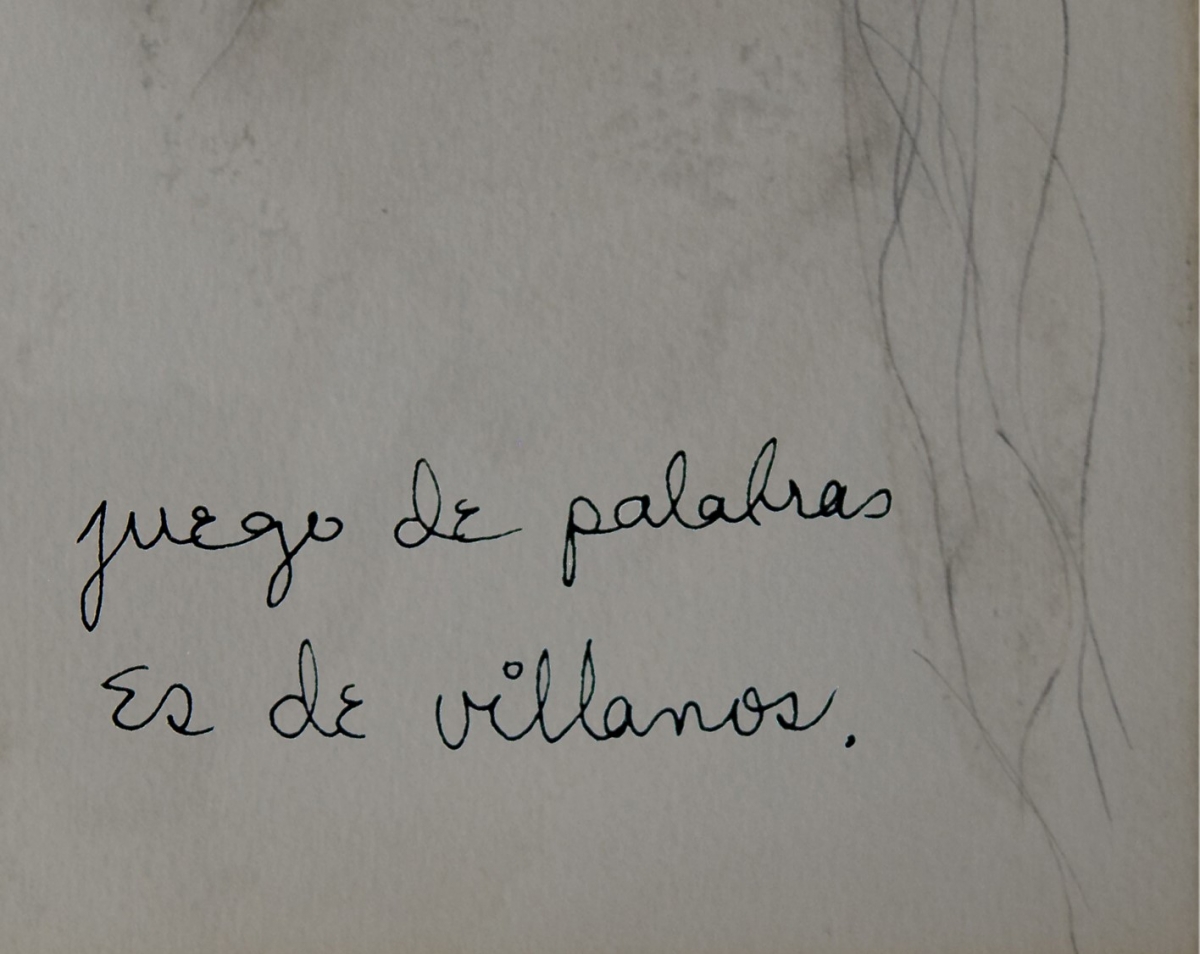 juego de palabras
Es de villanos.